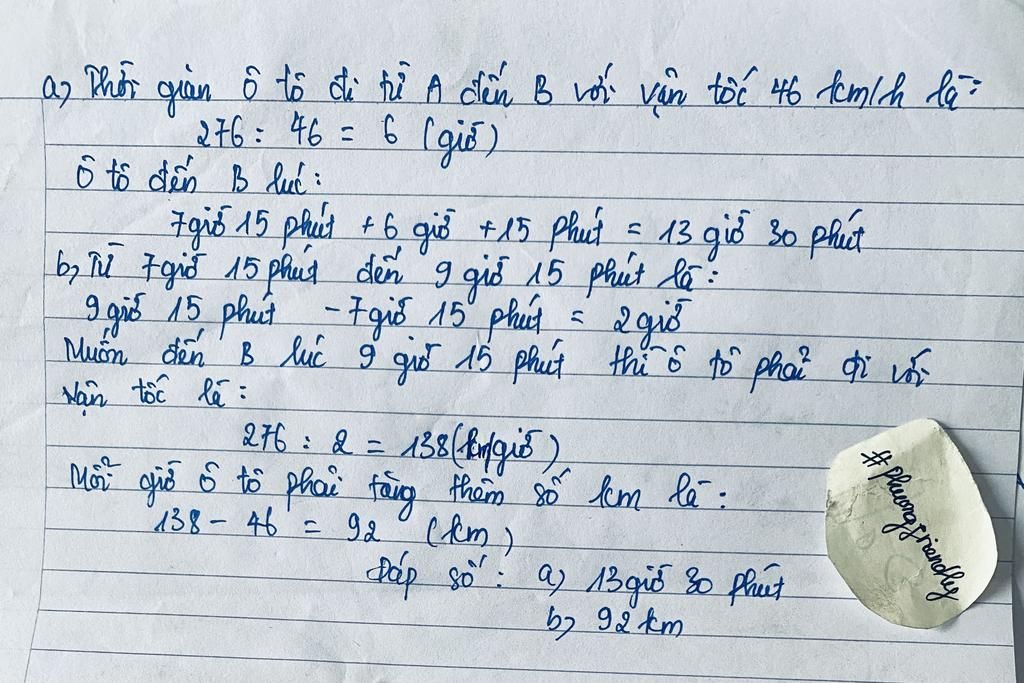 a) Thời gian ô tô đi từ A đến B với vận tốc 46 km/h là:
276 : 46 = 6 (giờ)
Ô tô đến B lúc:
7 giờ 15 phút + 6 giờ + 15 phút = 13 giờ 30 phút
b) Từ 7 giờ 15 phút đến 9 giờ 15 phút là:
9 giờ 15 phút - 7 giờ 15 phút = 2 giờ
Muốn đến B lúc 9 giờ 15 phút thì ô tô phải đi với
vận tốc là:
276 : 2 = 138 (km/giờ)
Mỗi giờ ô tô phải tăng thêm số km là:
138 - 46 = 92 (km)
Đáp số: a) 13 giờ 30 phút
b) 92 km
#phuongfriendly